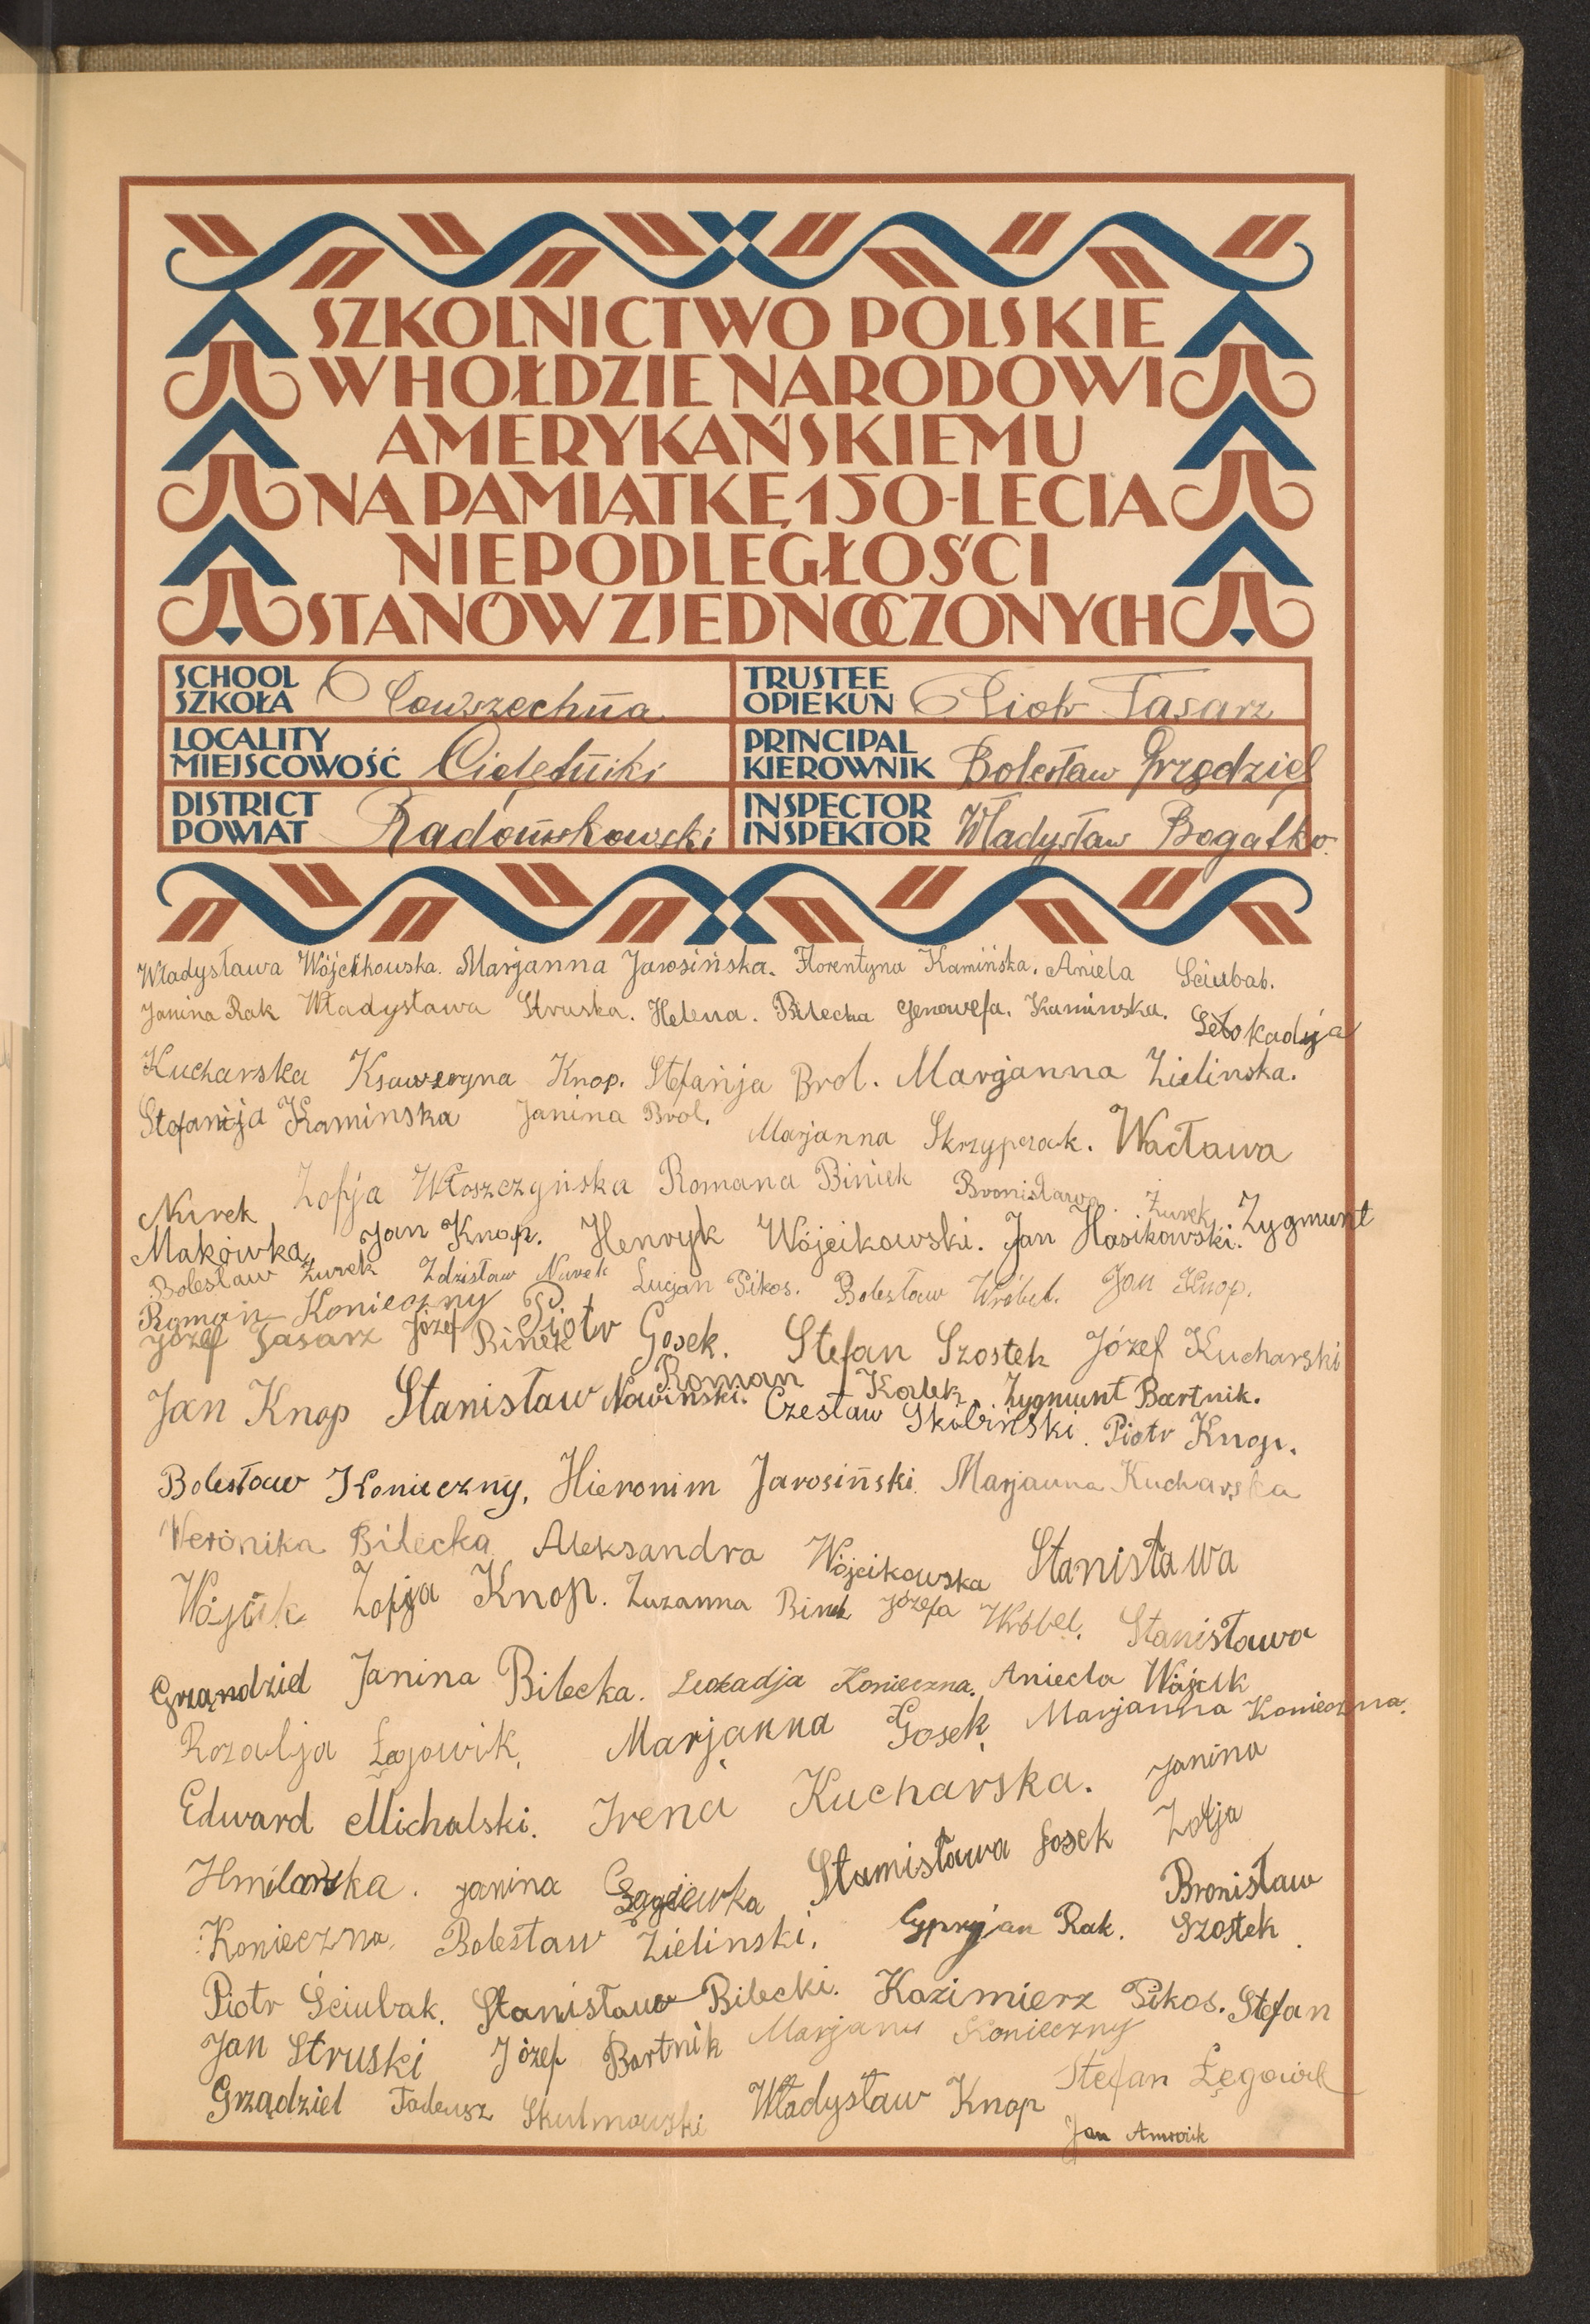 SZKOLNICTWO POLSKIE
W HOŁDZIE NARODOWI
AMERYKAŃSKIEMU
NA PAMIĄTKĘ 150-LECIA
NIEPODLEGŁOŚCI
STANÓW ZJEDNOCZONYCH
SCHOOL
SZKOŁA Powszechna
TRUSTEE
OPIEKUN Piotr Tasarz
LOCALITY
MIEJSCOWOŚĆ Cielętniki
PRINCIPAL
KIEROWNIK Bolesław Grządziel
DISTRICT
POWIAT Radomskowski
INSPECTOR
INSPEKTOR Władysław Bogatko.
Władysława Wójcikowska. Marjanna Jarosińska. Florentyna Kamińska. Aniela Sciubak.
Janina Rak Władysława Struska. Helena. Bilecka Genowefa. Kaminska. Leokadja
Kucharska Ksaweryna Knop. Stefańja Brol. Marjanna Zielinska.
Stefanija Kaminska Janina Brol. Marjanna Skrzypczak. Wacława
Nurek Zofja Włoszczyńska Romana Biniek Bronisława Żurek
Makówka Jan Knop. Henryk Wójcikowski. Jan Hasikowski. Zygmunt
Bolesław Żurek Zdzisław Nurek Lucjan Pikos. Bolesław Wróbel. Jan Knop.
Roman Konieczny Piotr Gosek. Stefan Szostek Józef Kucharski
Józef Tasarz Józef Binek
Jan Knop Stanisław Nowiński. Roman Kołek. Zygmunt Bartnik.
Czesław Skibiński. Piotr Knop.
Bolesław Konieczny, Hieronim Jarosiński. Marjanna Kucharska
Weronika Bilecka Aleksandra Wójcikowska Stanisława
Wójcik Zofja Knop. Zuzanna Binek Józefa Wróbel. Stanisława
Grządziel Janina Bilecka. Leokadja Konieczna. Aniela Wójcik
Rozalja Łęgowik, Marjanna Gosek Marjanna Konieczna.
Edward Michalski. Irena Kucharska. Janina
Hmilarska. Janina Stanisława Gosek Zofja
Konieczna. Bolesław Zielinski. Cypryjan Rak. Bronisław Szostek.
Piotr Ściubak. Stanisław Bilecki. Kazimierz Pikos. Stefan
Jan Struski Józef Bartnik Marjan Konieczny
Grządziel Tadeusz Skulmowski Władysław Knop Stefan Łęgowik
Jan